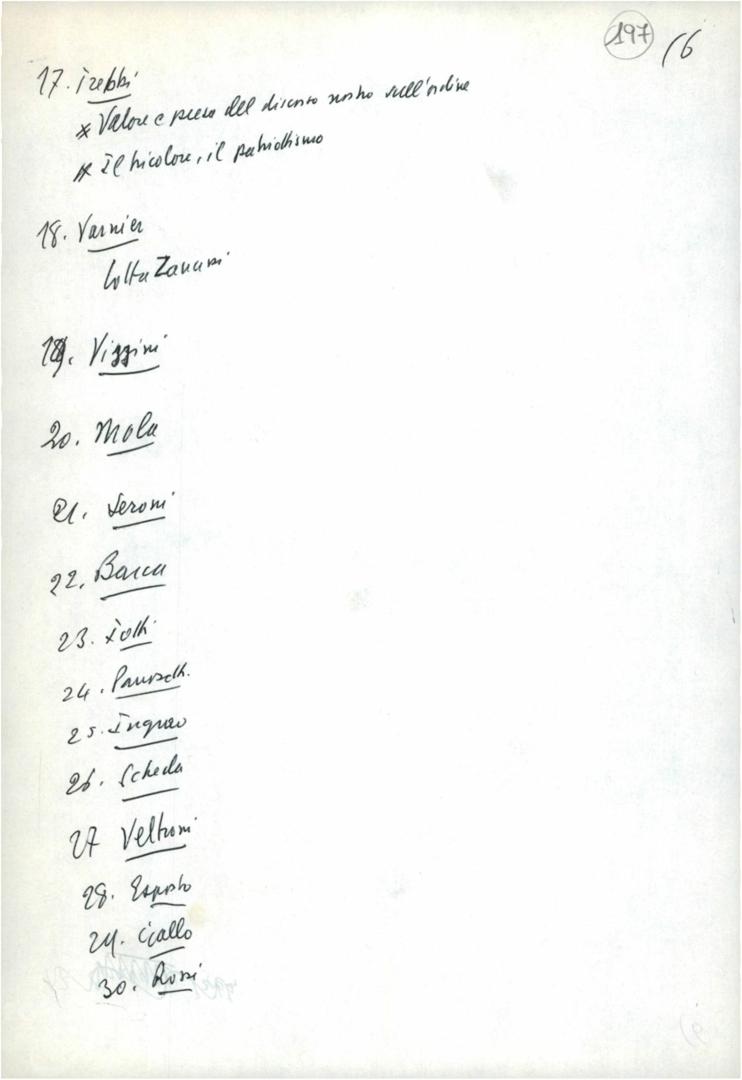 197
16
17. Trebbi
* Valore e presa del discorso nostro sull'ordine
* Il tricolore, il patriottismo
18. Varnier
lotta Zanussi
19. Vizzini
20. Mola
21. Seroni
22. Barca
23. Iotti
24. Pavolini
25. Ingrao
26. Scheda
27 Veltroni
28. Esposto
29. Ciallo
30. Rossi